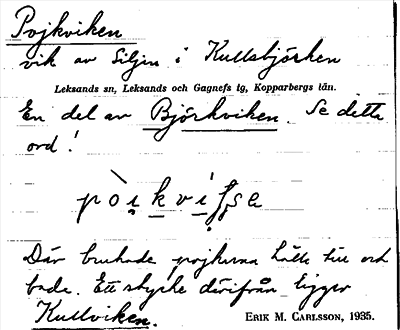 Pojkviken
vik av Siljan i Kullsbjörken
Leksands sn, Leksands och Gagnefs tg, Kopparbergs län.
En del av Björkviken. Se detta
ord!
Där brukade pojkarna hålla till och
bada. Ett stycke därifrån ligger
Kullviken.
ERIK M. CARLSSON, 1935.